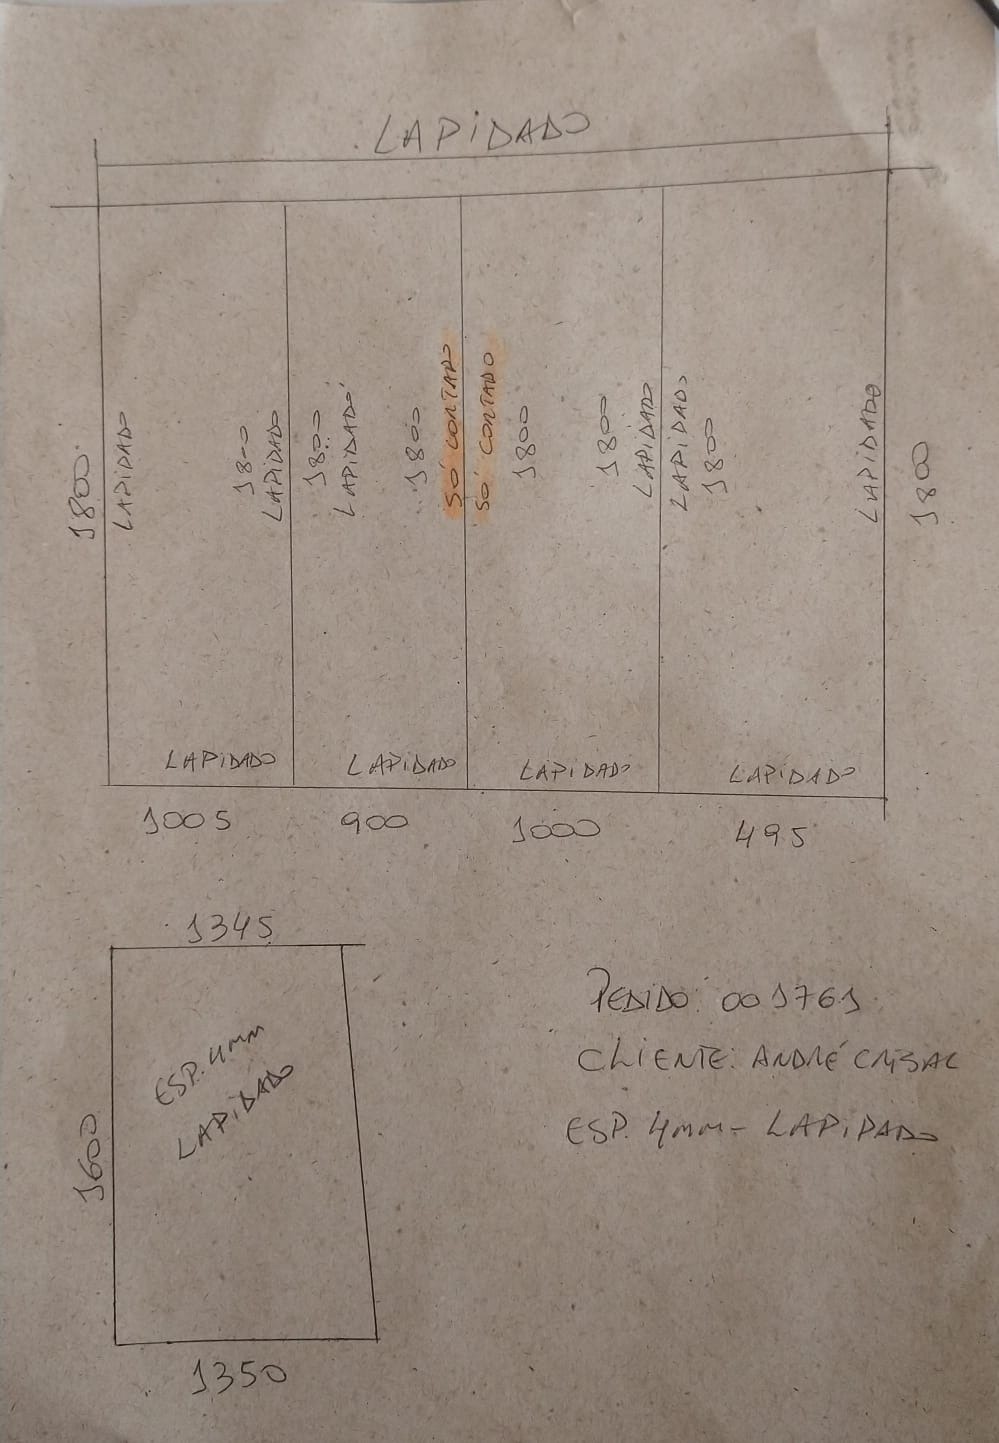 LAPIDADO
1800
LAPIDADO
1800
LAPIDADO
1800
LAPIDADO
1800
SÓ CORTADO
SÓ CORTADO
1800
1800
LAPIDADO
LAPIDADO
1800
LAPIDADO
1800
LAPIDADO
LAPIDADO
LAPIDADO
LAPIDADO
1005
900
1000
495
1345
1600
ESP. 4mm
LAPIDADO
1350
PEDIDO: 001761
CLIENTE: ANDRÉ
ESP. 4mm - LAPIDADO